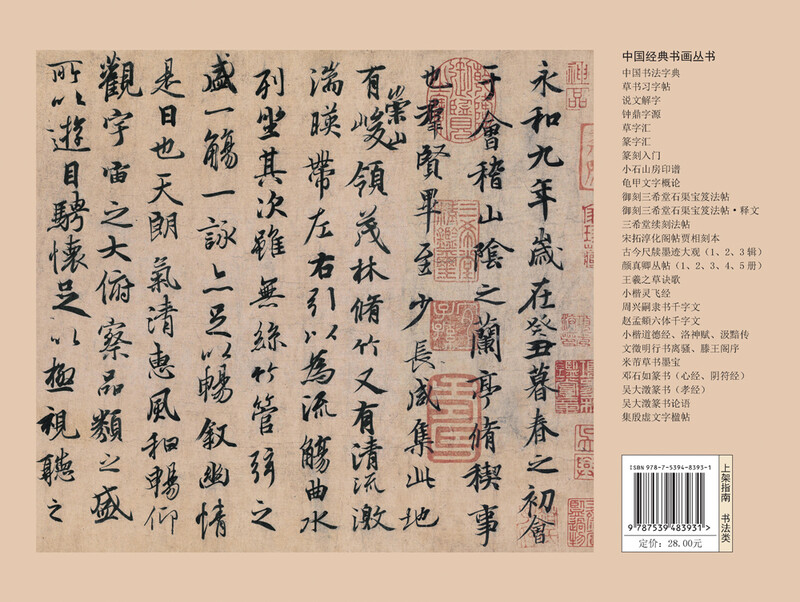 永和九年歲在癸丑暮春之初會
于會稽山陰之蘭亭脩稧事
也羣賢畢至少長咸集此地
有崇山峻領茂林脩竹又有清流激
湍暎帶左右引以為流觴曲水
列坐其次雖無絲竹管弦之
盛一觴一詠亦足以暢敘幽情
是日也天朗氣清惠風和暢仰
觀宇宙之大俯察品類之盛
所以遊目騁懷足以極視聽之
神品
中国经典书画丛书
中国书法字典
草书习字帖
说文解字
钟鼎字源
草字汇
篆字汇
篆刻入门
小石山房印谱
龟甲文字概论
御刻三希堂石果宝笈法帖
御刻三希堂石果宝笈法帖·释文
三希堂续刻法帖
宋拓淳化阁帖贾相刻本
古今尺牍墨迹大观（1、2、3 辑）
颜真卿丛帖（1、2、3、4、5 册）
王羲之草诀歌
小楷灵飞经
周兴嗣隶书千文字
赵孟頫六体千字文
小楷道德经、洛神赋、汲黯传
文徵明行书离骚、滕王阁序
米芾草书墨宝
邓石如篆书（心经、阴符经）
吴大澂篆书（孝经）
吴大澂篆书论语
集殷虚文字楹帖
ISBN 978-7-5394-8393-1
9 787539 483931 >
定价：28.00元
上架指南 书法类